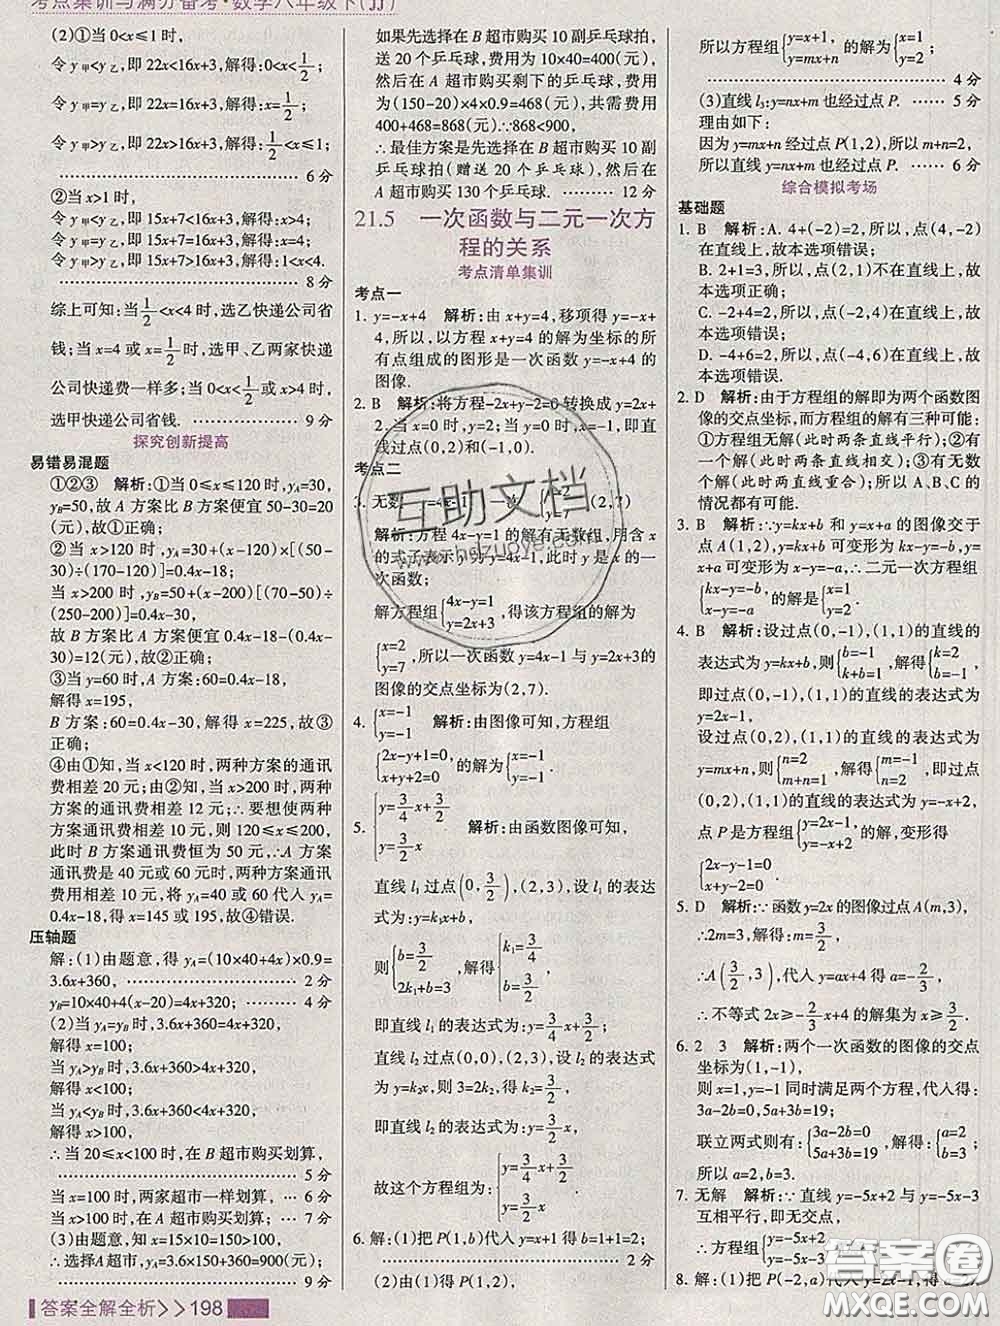 考点集训与满分备考·数学八年级下(JJ)
(2)①当 0<x≤1 时,
令 y甲<y乙,即 22x<16x+3,解得:0<x<1/2;
令 y甲=y乙,即 22x=16x+3,解得:x=1/2;
令 y甲>y乙,即 22x>16x+3,解得:1/2<x≤1;
6 分
②当 x>1 时,
令 y甲<y乙,即 15x+7<16x+3,解得:x>4;
令 y甲=y乙,即 15x+7=16x+3,解得:x=4;
令 y甲>y乙,即 15x+7>16x+3,解得:x<4.
8 分
综上可知:当 1/2<x<4 时,选乙快递公司省
钱;当 x=4 或 x=1/2 时,选甲、乙两家快递
公司快递费一样多;当 0<x<1/2 或 x>4 时,
选甲快递公司省钱. 9 分
探究创新提高
易错易混题
①②③ 解析:①当 0≤x≤120 时,yA=30,
yB=50,故 A 方案比 B 方案便宜 50-30=20
(元),故①正确;
②当 x>120 时,yA=30+(x-120)×[(50-
30)÷(170-120)]=0.4x-18;
当 x>200 时,yB=50+(x-200)[(70-50)÷
(250-200)]=0.4x-30,
故 B 方案比 A 方案便宜 0.4x-18-(0.4x-
30)=12(元),故②正确;
③当 y=60 时,A 方案:60=0.4x-18,
解得 x=195,
B 方案:60=0.4x-30,解得 x=225,故③
正确;
④由①知,当 x<120 时,两种方案的通讯
费相差 20 元;由②知,当 x>200 时,两种方
案的通讯费相差 12 元;∴要想使两种
方案通讯费相差 10 元,则 120≤x≤200,
此时 B 方案通讯费恒为 50 元,∴A 方案
通讯费是 40 元或 60 元时,两种方案通讯
费用相差 10 元,将 yA=40 或 60 代入 yA=
0.4x-18,得 x=145 或 195,故④错误.
压轴题
解:(1)由题意,得 yA=(10×40+4x)×0.9=
3.6x+360, 2 分
yB=10×40+4(x-20)=4x+320; 4 分
(2)当 yA=yB 时,3.6x+360=4x+320,
解得 x=100;
当 yA>yB 时,3.6x+360>4x+320,
解得 x<100;
当 yA<yB 时,3.6x+360<4x+320,
解得 x>100,
∴当 20≤x<100 时,在 B 超市购买划算,
5 分
当 x=100 时,两家超市一样划算, 6 分
当 x>100 时,在 A 超市购买划算; 7 分
(3)由题意,知 x=15×10=150>100,
∴选择A超市,yA=3.6×150+360=900(元)
9 分
如果先选择在 B 超市购买 10 副乒乓球拍,
送 20 个乒乓球,花费为 10×40=400(元),
然后在 A 超市购买剩下的乒乓球,花费
为(150-20)×4×0.9=468(元),共需费用
400+468=868(元)∵868<900,
∴最佳方案是先选择在 B 超市购买 10 副
乒乓球拍(赠送 20 个乒乓球),然后在
A 超市购买 130 个乒乓球. 12 分
21.5 一次函数与二元一次方
程的关系
考点清单集训
考点一
1. y=-x+4 解析:由 x+y=4,移项得 y=-x+
4,所以,以方程 x+y=4 的解为坐标的所
有点组成的图形是一次函数 y=-x+4 的
图像.
2. B 解析:将方程-2x+y-2=0 转换成 y=2x+
2,当 x=0 时,y=2;当 y=0 时,x=-1,即直
线过点(0,2)和(-1,0).
考点二
3. 无数 y=4x-1 一次 {x=2 y=7 (2,7)
解析:方程 4x-y=1 的解有无数组,用含 x
的式子表示 y 为 y=4x-1,此时 y 是 x 的一
次函数;
解方程组{4x-y=1 y=2x+3,得该方程组的解为
{x=2 y=7,所以一次函数 y=4x-1 与 y=2x+3 的
图像的交点坐标为(2,7).
4. {x=-1 y=-1 解析:由图像可知,方程组
{2x-y+1=0, x+y+2=0 的解为{x=-1 y=-1.
5. {y=3/4x+3/2 y=3/2x 解析:由函数图像可知,
直线 l1过点(0,3/2),(2,3),设 l1的表达式
为 y=k1x+b,
则{b=3/2 2k1+b=3,解得{k1=3/4 b=3/2,
即直线 l1的表达式为:y=3/4x+3/2;
由直线 l2过(0,0),(2,3),设 l2的表达式
为 y=k2x,得 3=2k2,得 k2=3/2,
即直线 l2的表达式为:y=3/2x,
故这个方程组为:{y=3/4x+3/2 y=3/2x.
6. 解:(1)把 P(1,b)代入 y=x+1 得 b=1+1=2;
2 分
(2)由(1)得 P(1,2),
所以方程组{y=x+1, y=mx+n 的解为{x=1 y=2;
4 分
(3)直线 l3:y=nx+m 也经过点 P. 5 分
理由如下:
因为 y=mx+n 经过点 P(1,2),所以 m+n=2,
所以直线 y=nx+m 也经过点 P. 6 分
综合模拟考场
基础题
1. B 解析:A. 4+(-2)=2,所以,点(4,-2)
在直线上,故本选项错误;
B. 2+1=3,所以,点(2,1)不在直线上,故
本选项正确;
C. -2+4=2,所以,点(-2,4)在直线上,故
本选项错误;
D. -4+6=2,所以,点(-4,6)在直线上,故
本选项错误.
2. D 解析:由于方程组的解即为两个函数图
像的交点坐标,而方程组的解有三种可能:
①方程组无解(此时两条直线平行);②
无数个解(此时两条直线重合);③一个
解(此时两条直线相交);所以,A、B、C 的
情况都有可能.
3. B 解析:∵y=kx+b 和 y=x+a 的图像交于
点 A(1,2),y=kx+b 可变形为 kx-y=-b,y=
x+a 可变形为 x-y=-a,∴二元一次方程组
{kx-y=-b x-y=-a 的解是{x=1 y=2.
4. B 解析:设过点(0,-1),(1,1)的直线的
表达式为 y=kx+b,则{b=-1 k+b=1,解得{k=2 b=-1,
即过点(0,-1),(1,1)的直线的表达式为
y=2x-1,
设过点(0,2),(1,1)的直线的表达式为
y=mx+n,则{n=2 m+n=1,解得{m=-1 n=2,即过点
(0,2),(1,1)的直线的表达式为 y=-x+2,
点 P 是方程组{y=2x-1 y=-x+2 的解,变形得
{2x-y-1=0 x+y-2=0.
5. D 解析:∵函数 y=2x 的图像过点 A(m,3),
∴2m=3,解得:m=3/2,
∴A(3/2,3),代入 y=ax+4 得 a=-2/3,
∴不等式 2x≥-2/3x+4 的解集为 x≥3/2.
6. 2 3 解析:两个一次函数的图像的交点
坐标为(1,-1),
则 x=1,y=-1 同时满足两个方程,代入得:
3a-2b=0,5a+3b=19;
联立两式则有:{3a-2b=0 5a+3b=19,解得:{a=2 b=3;
所以 a=2,b=3.
7. 无解 解析:∵直线 y=-5x+2 与 y=-5x-3
互相平行,即无交点,
∴方程组{y=-5x+2 y=-5x-3
8. 解:(1)把 P(-2,a)代入 y=2x-1
答案全解全析>>198
互助文档
www.hdzuoye.com
答案圈
MXQE.COM